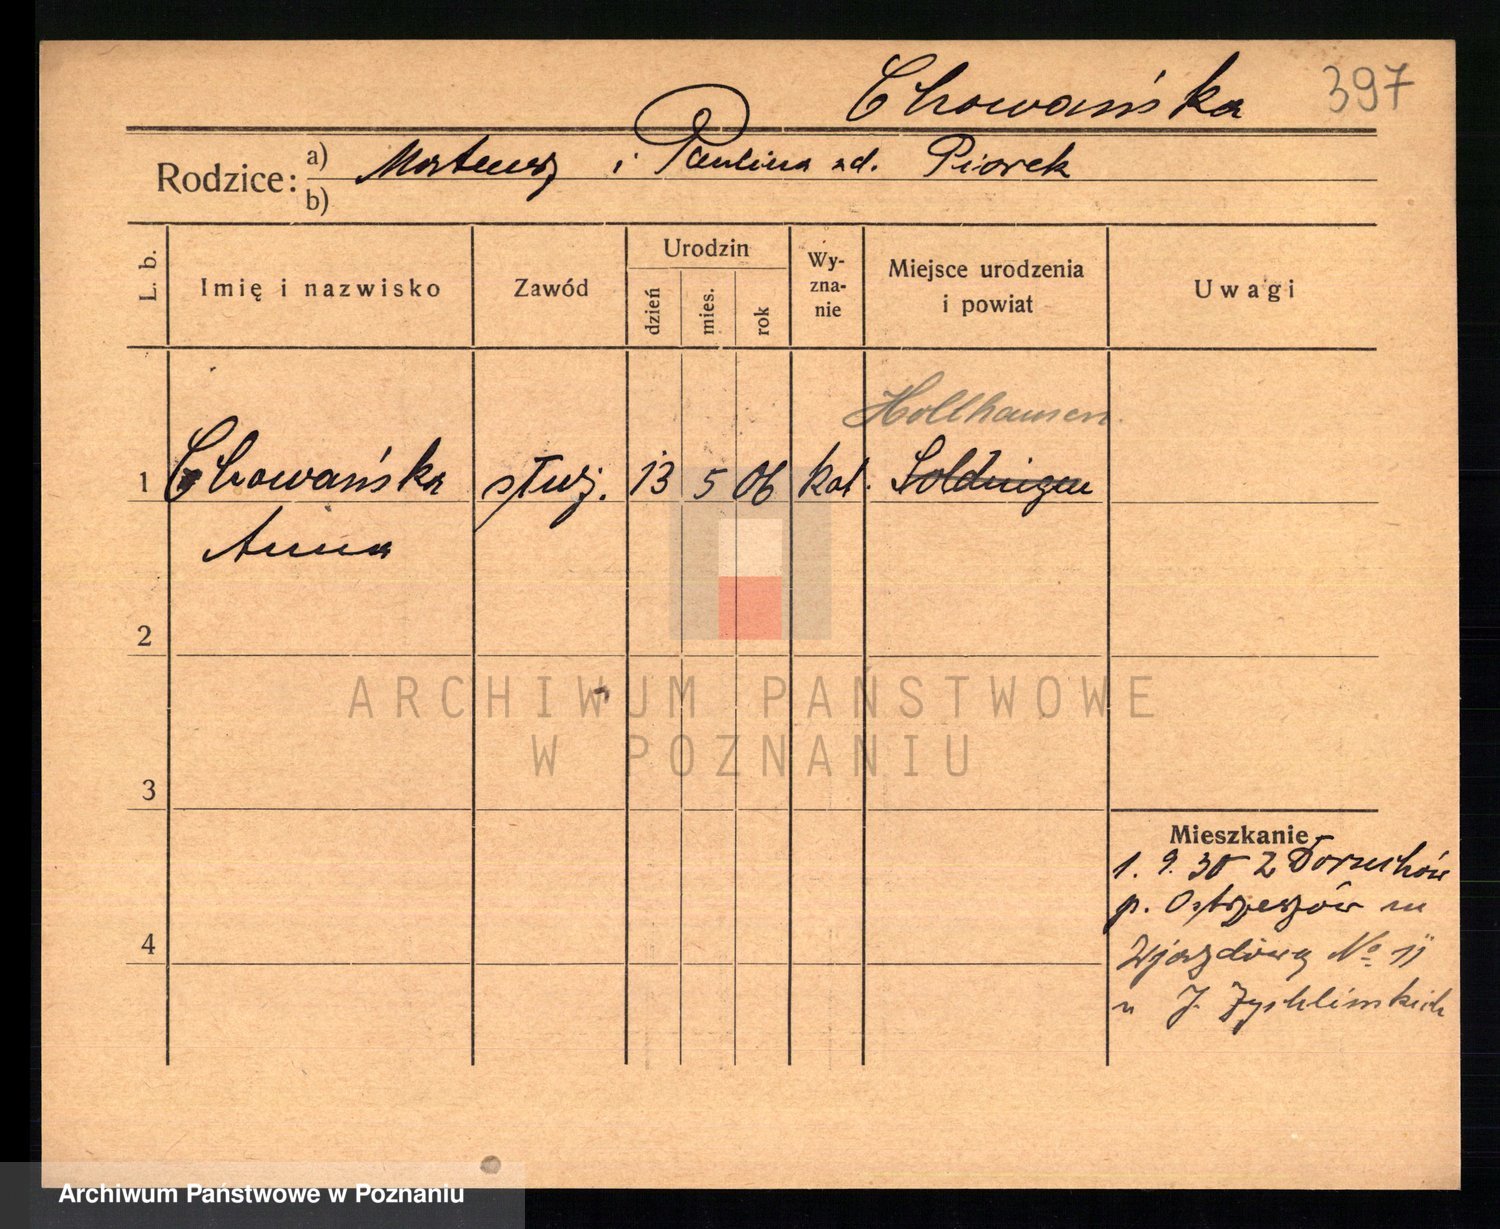 Chowańska 397
Rodzice: a) Mateusz i Paulina zd. Piorek
b)
L. b.
Imię i nazwisko
Zawód
Urodzin
dzień
mies.
rok
Wy-
zna-
nie
Miejsce urodzenia
i powiat
Uwagi
Hollhausen
1 Chowańska służ. 13 5 06 kat. Soldningen
Anna
2
ARCHIWUM PAŃSTWOWE
W POZNANIU
3
Mieszkanie
1. 9. 30 z Doruchów
p. Ostrzeszów na
4
Wjazdową No 11
u J. Żychlińskich
Archiwum Państwowe w Poznaniu